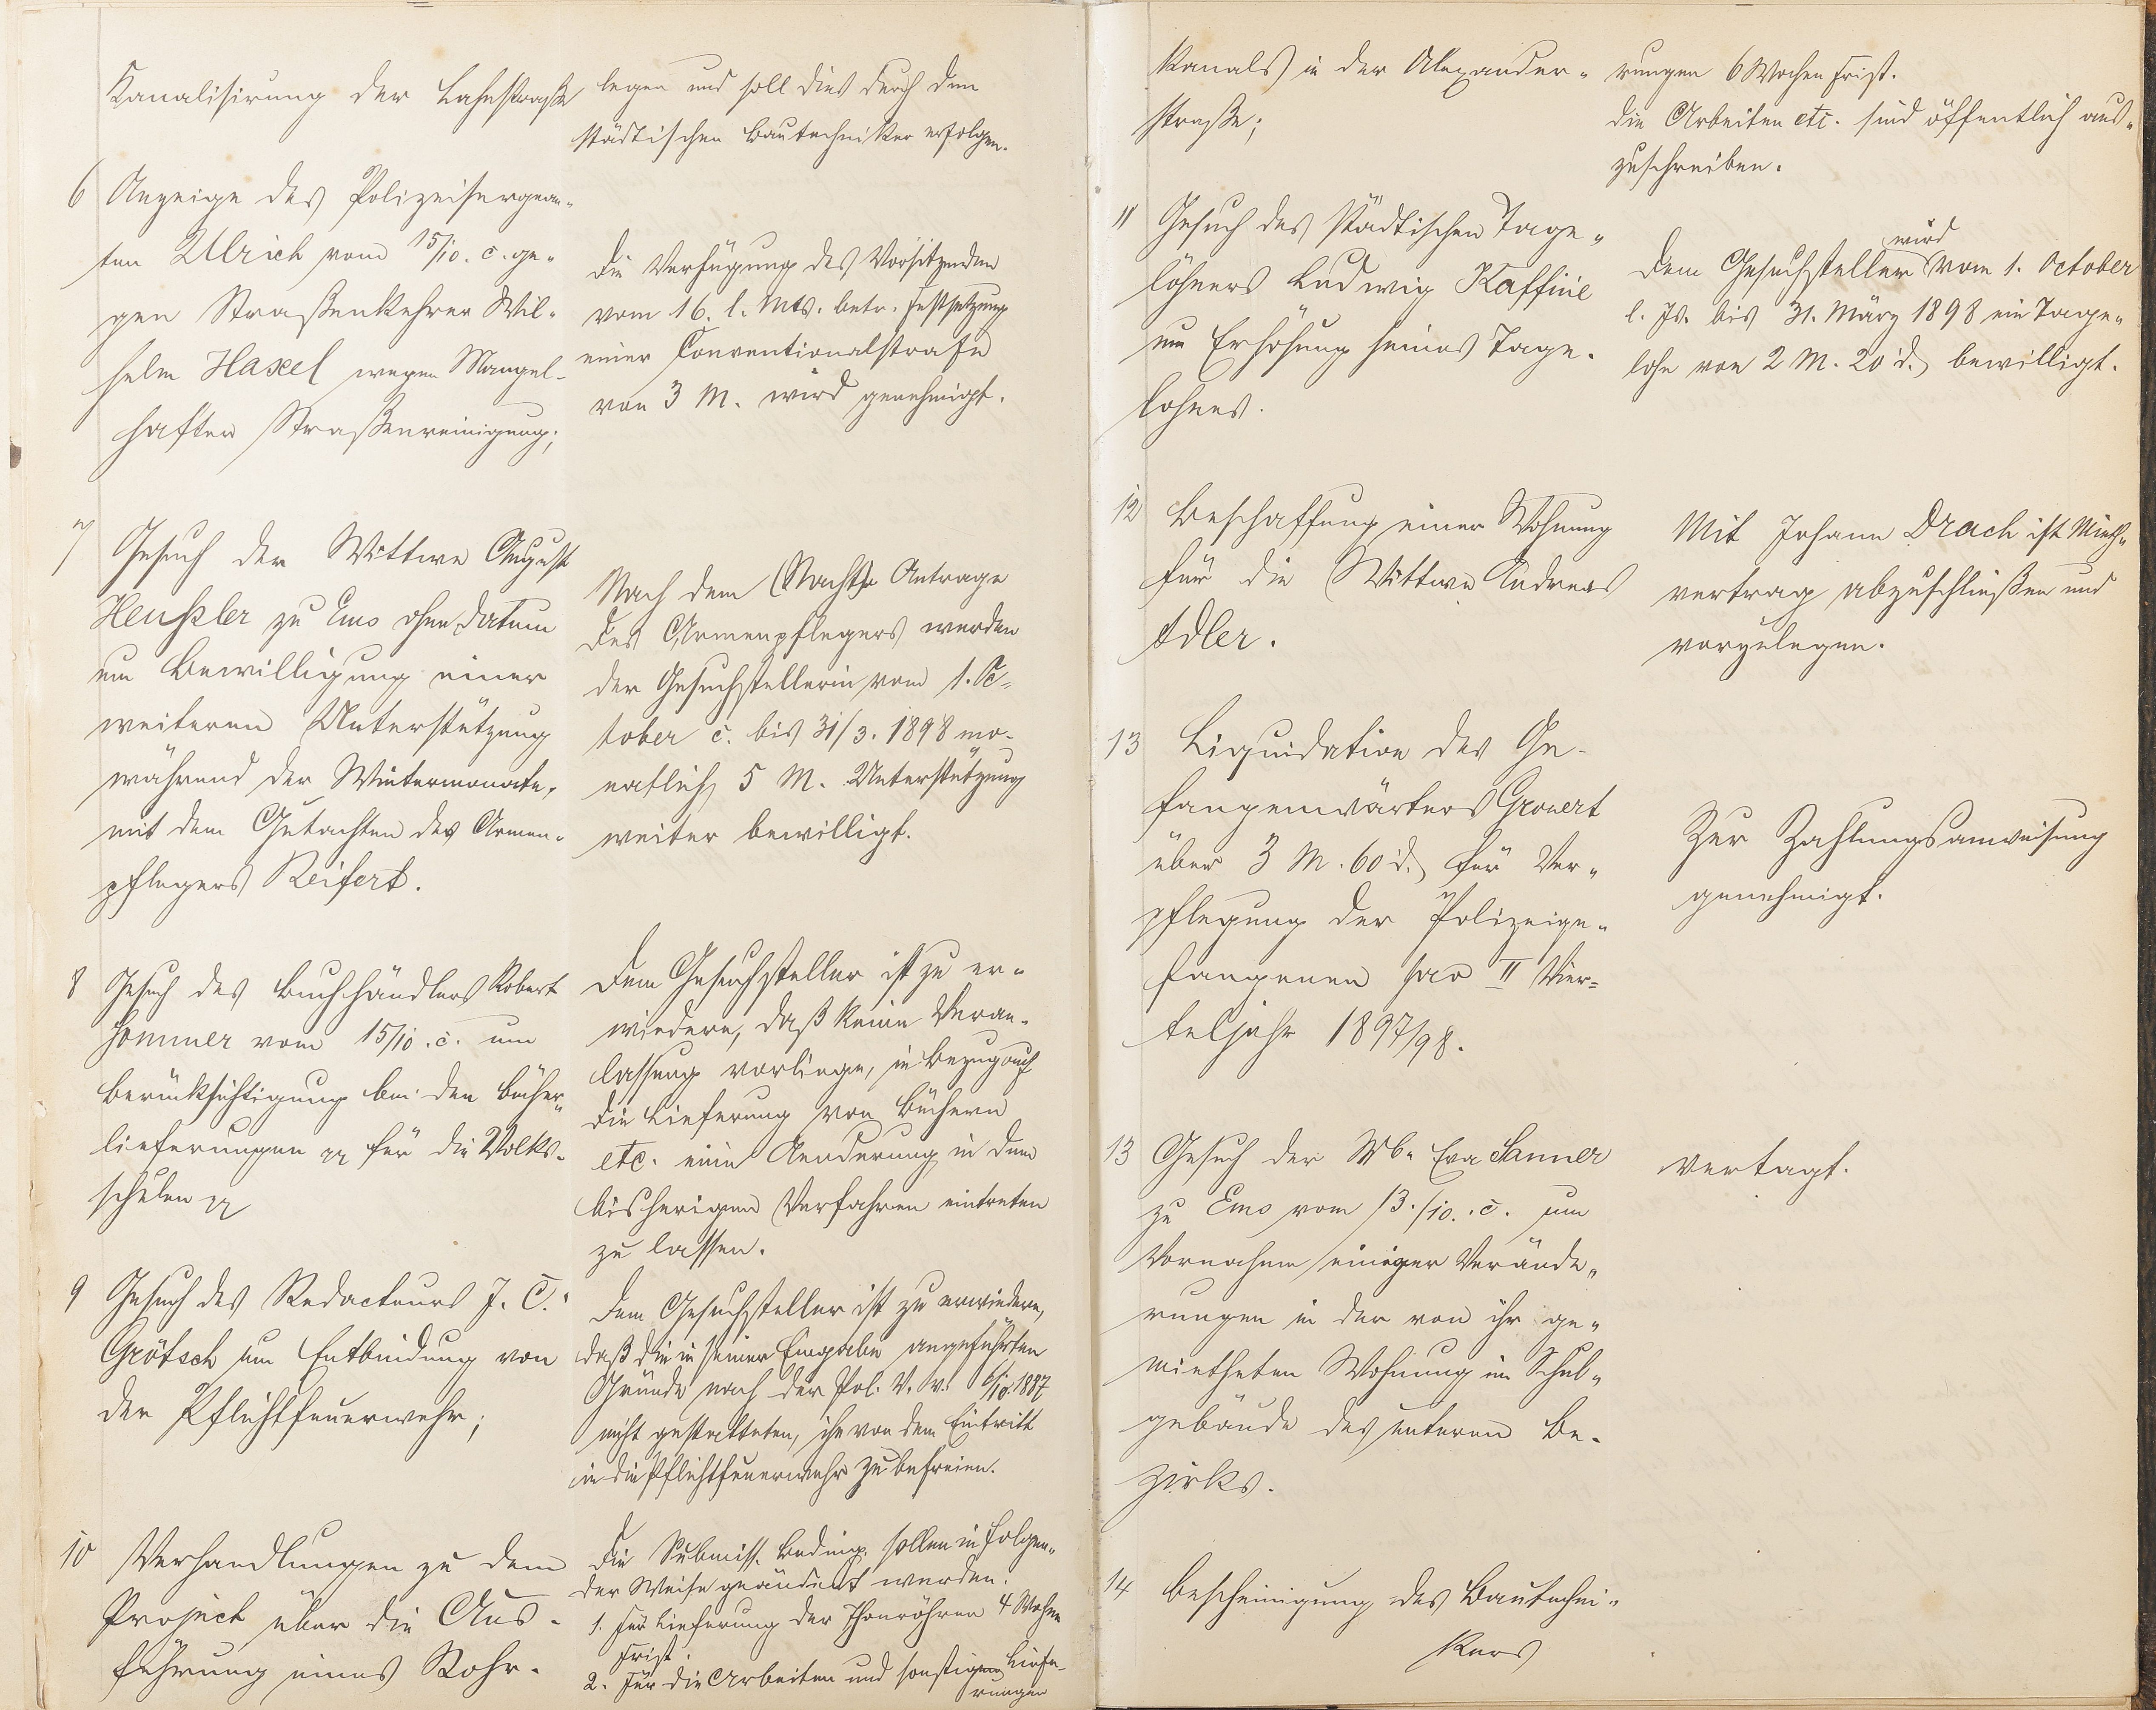 Kanalisirung der Lahnstraße
6 Anzeige des Polizeisergean-
ten Ulrich vom 15/10. c. ge-
gen Straßenkehrer Wil-
helm Haxel wegen Mangel-
hafter Straßenreinigung;
7 Gesuch der Wittwe August
Heußler zu Ems ohne Datum
um Bewilligung einer
weiteren Unterstützung
während der Wintermonate,
mit dem Gutachten des Armen-
pflegers Reifert.
8 Gesuch des Buchhändlers Robert
Sommer vom 15/10. c. um
Berücksichtigung bei den Bücher-
lieferungen pp für die Volks-
schulen pp
9 Gesuch des Redacteurs J. C.
Grötsch um Entbindung von
der Pflichtfeuerwehr;
10 Verhandlungen zu dem
Project über die Aus-
führung eines Rohr-
legen und soll dies durch den
städtischen Bautechniker erfolgen.
Die Verfügung des Vorsitzenden
vom 16. l. Mts. betr. Festsetzung
einer Conventionalstrafe
von 3 M. wird genehmigt.
Nach dem Antrage
des Armenpflegers werden
der Gesuchstellerin vom 1. Oc-
tober c. bis 31/3. 1898 mo-
natlich 5 M. Unterstützung
weiter bewilligt.
Dem Gesuchsteller ist zu er-
wiedern, daß keine Veran-
lassung vorliege, in Bezug auf
die Lieferung von Büchern
etc. eine Aenderung in dem
bisherigen Verfahren eintreten
zu lassen.
Dem Gesuchsteller ist zu erwiedern,
daß die in seiner Eingabe angeführten
Gründe nach der Pol. V. v. 6/10. 1887
nicht gestatteten, ihn von dem Eintritt
in die Pflichtfeuerwehr zu befreien.
Die Submiss. Beding. sollen in folgen-
der Weise geändert werden.
1. Für Lieferung der Thonröhren 4 Wochen
Frist.
2. Für die Arbeiten und sonstigen Liefe-
rungen
Kanals in der Alexander-
straße;
11 Gesuch des städtischen Tage-
löhners Ludwig Kaffine
um Erhöhung seines Tage-
lohnes.
12 Beschaffung einer Wohnung
für die Wittwe Andreas
Adler.
13 Liquidation des Ge-
fangenwärters Gronert
über 3 M. 60 d. für Ver-
pflegung der Polizeige-
fangenen pro II Vier-
teljahr 1897/98.
13 Gesuch der Wb. Eva Sanner
zu Ems vom 13./10. c. um
Vornahme einiger Verände-
rungen in der von ihr ge-
mietheten Wohnung im Schul-
gebäude des unteren Be-
zirks.
14 Bescheinigung des Bautechni-
kers
rungen 6 Wochen Frist.
Die Arbeiten etc. sind öffentlich aus-
zuschreiben.
wird
Dem Gesuchsteller vom 1. October
l. Js. bis 31. März 1898 ein Tage-
lohn von 2 M. 20 d. bewilligt.
Mit Johann Drach ist Mieth-
vertrag abzuschließen und
vorzulegen.
Zur Zahlungsanweisung
genehmigt.
Vertagt.